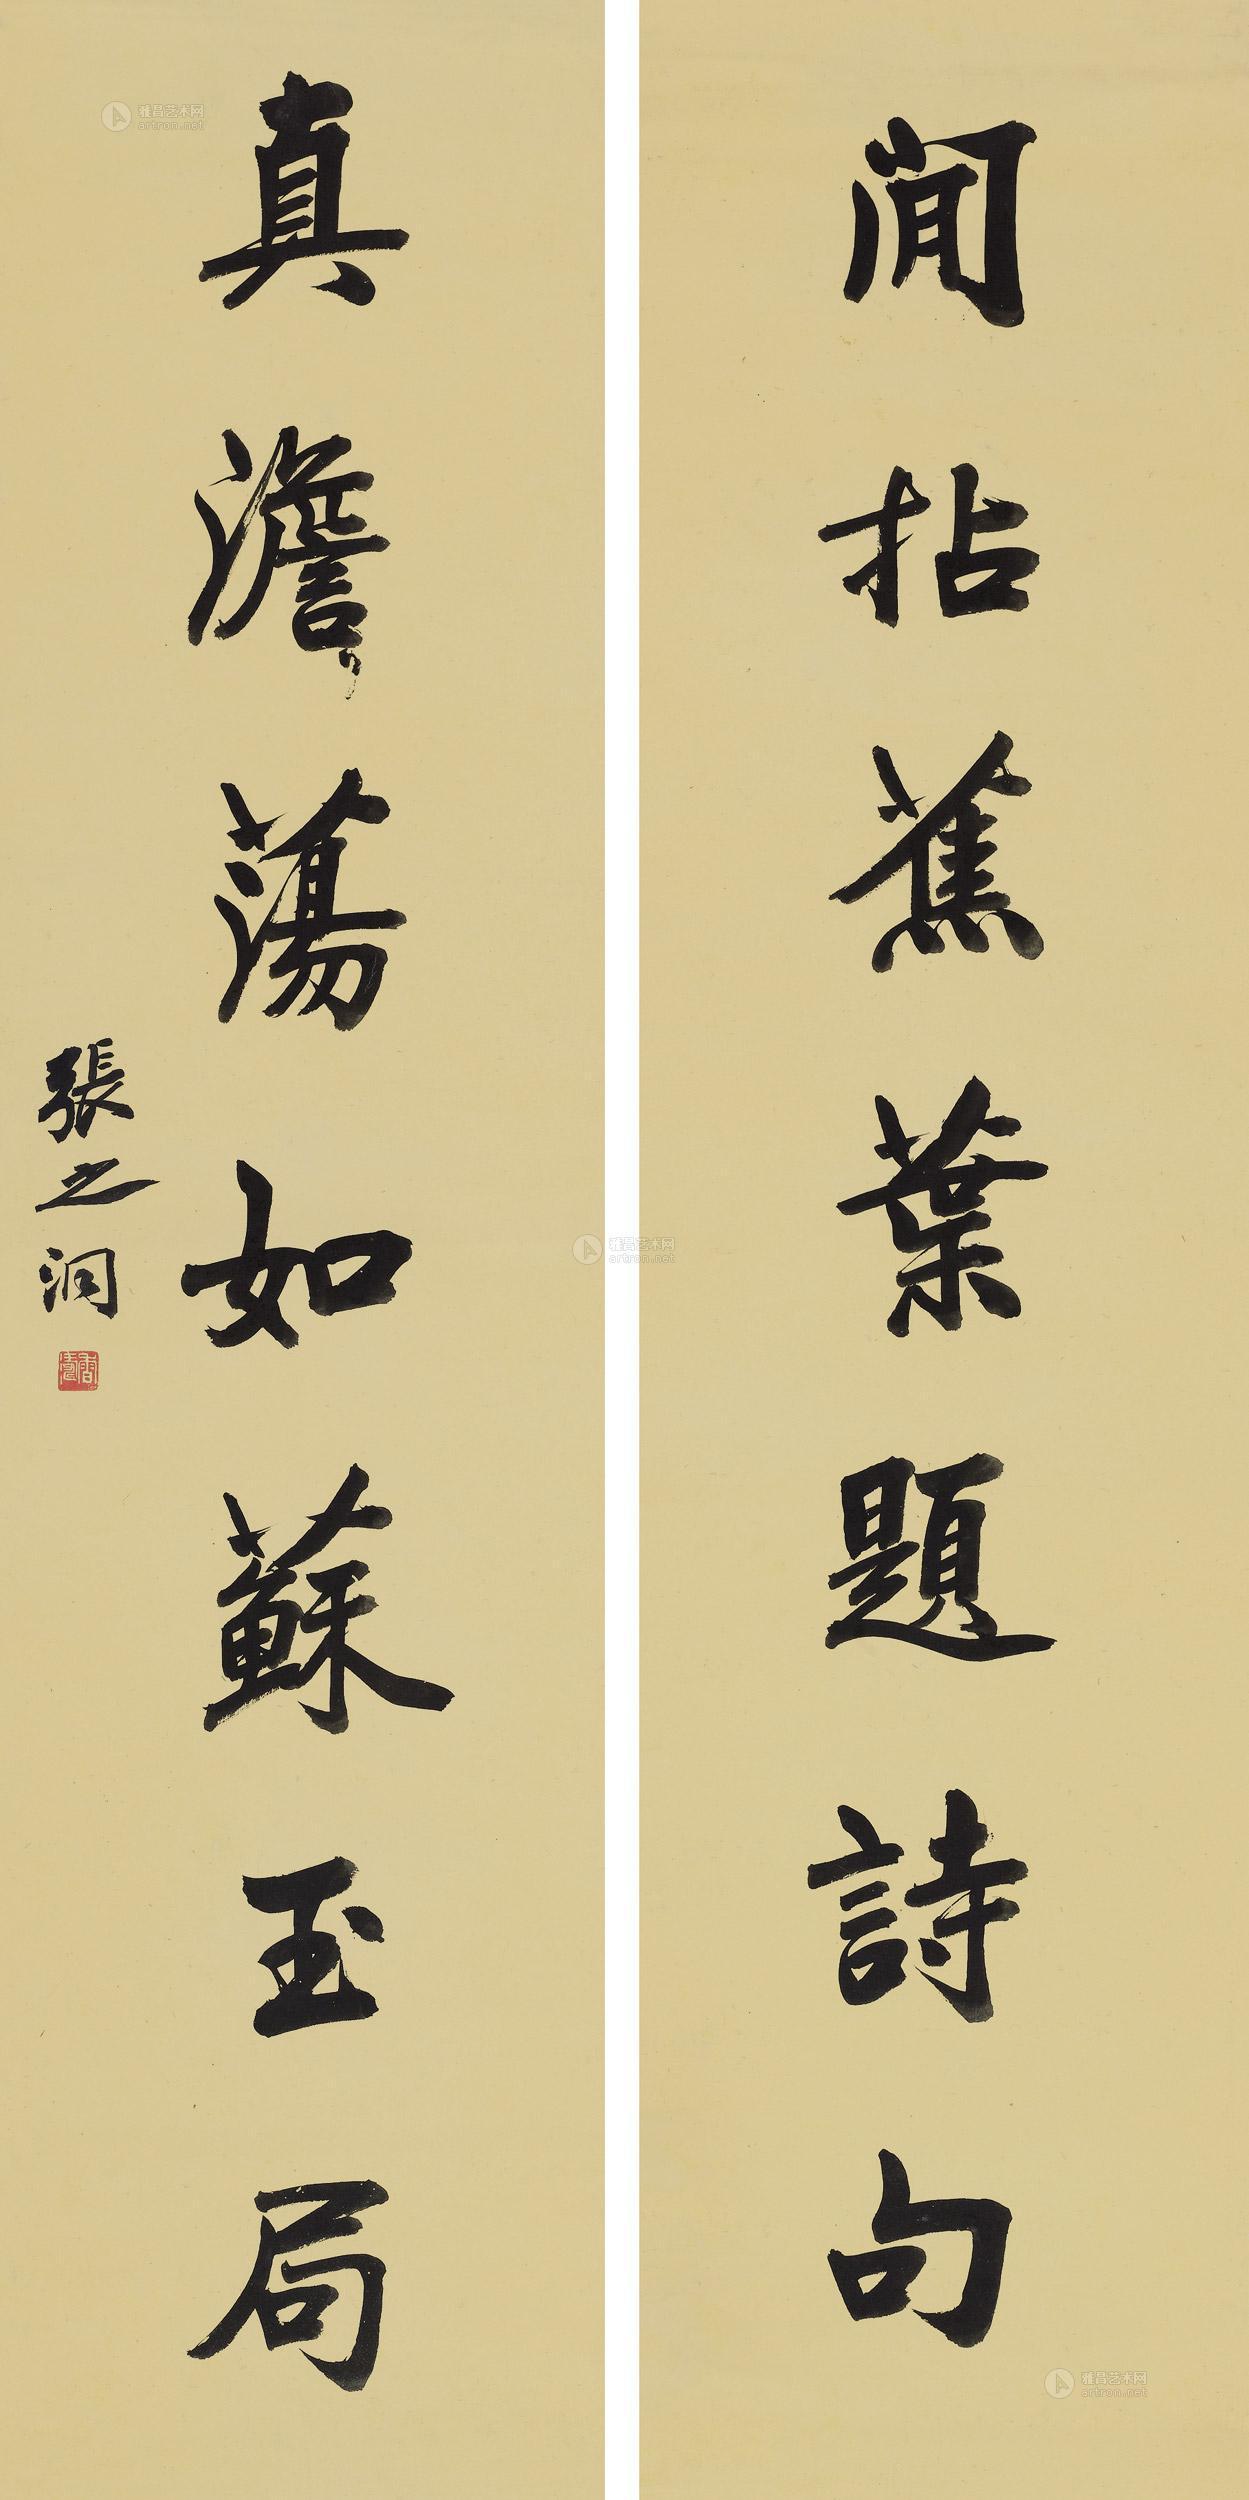 閒拈蕉葉題詩句
真澹蕩如蘇玉局
張之洞
香濤
雅昌艺术网
artron.net
雅昌艺术网
artron.net
雅昌艺术网
artron.net